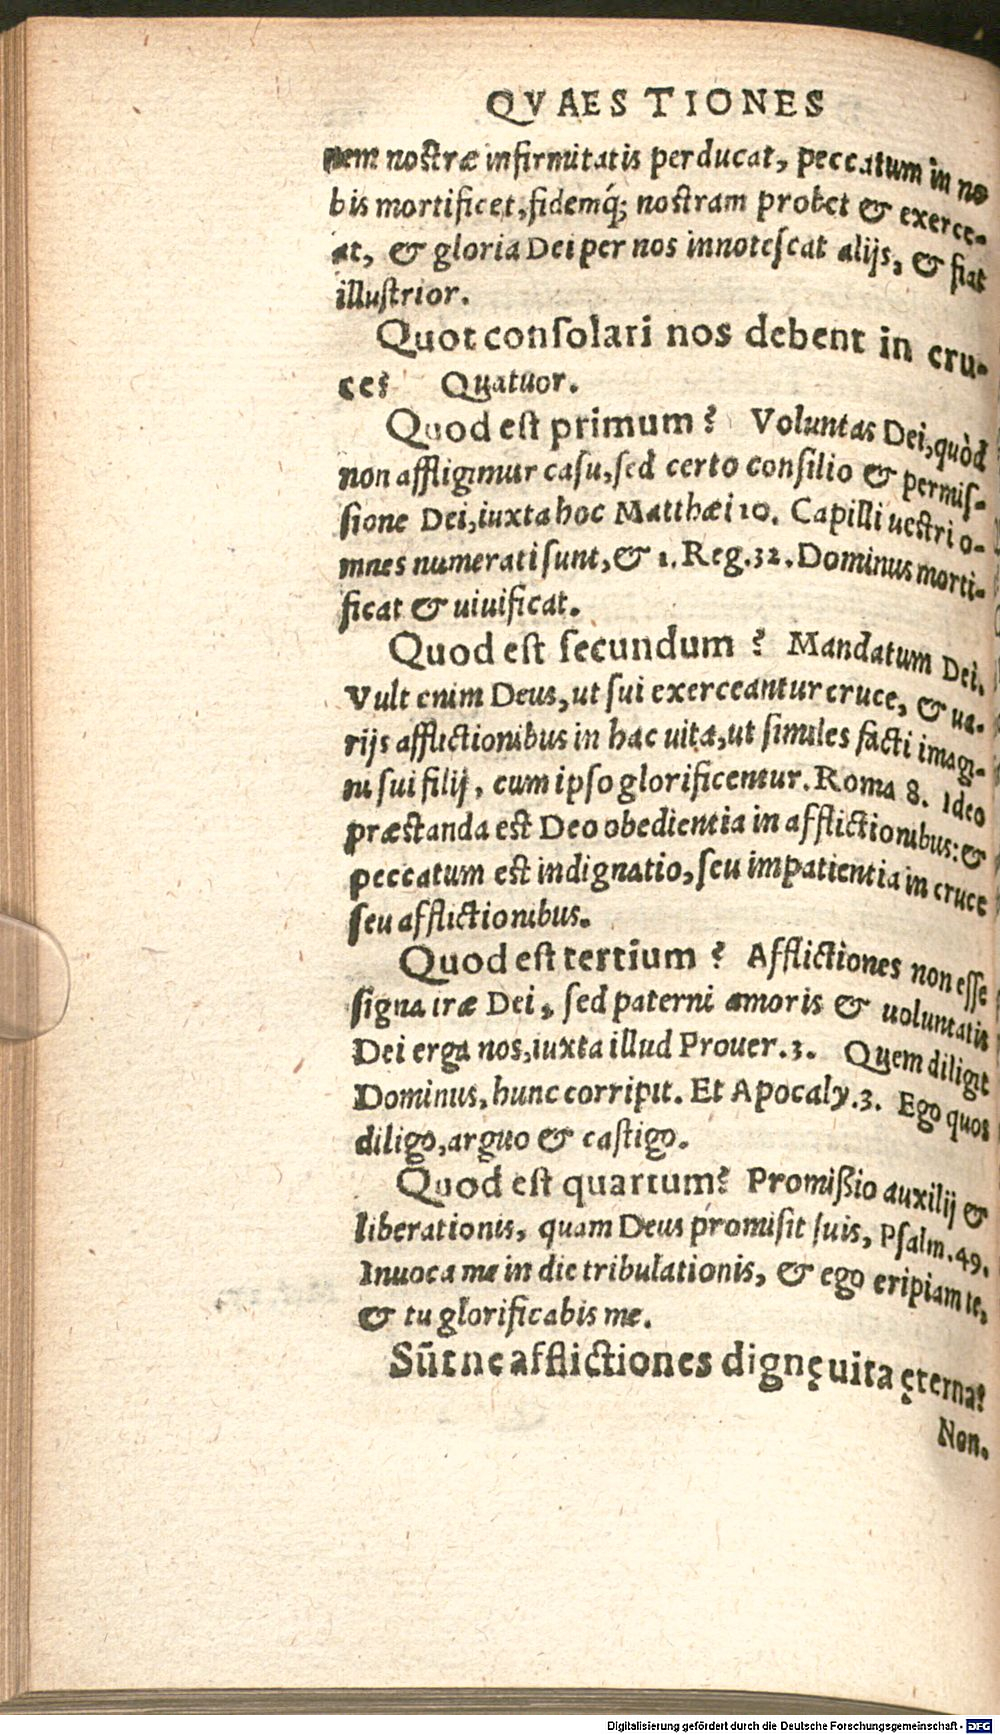 QVAESTIONES
nem nostræ infirmitatis perducat, peccatum in no
bis mortificet, fidemq́; nostram probet & exerce-
at, & gloria Dei per nos innotescat alijs, & fiat
illustrior.
Quot consolari nos debent in cru-
ce? Quatuor.
Quod est primum? Voluntas Dei, quòd
non affligimur casu, sed certo consilio & permis-
sione Dei, iuxta hoc Matthæi 10. Capilli uestri o-
mnes numerati sunt, & 1. Reg. 32. Dominus morti-
ficat & uiuificat.
Quod est secundum? Mandatum Dei.
Vult enim Deus, ut sui exerceantur cruce, & ua-
rijs afflictionibus in hac uita, ut similes facti imagi-
ni sui filij, cum ipso glorificentur. Roma 8. Ideo
præstanda est Deo obedientia in afflictionibus: &
peccatum est indignatio, seu impatientia in cruce
seu afflictionibus.
Quod est tertium? Afflictiones non esse
signa iræ Dei, sed paterni amoris & uoluntatis
Dei erga nos, iuxta illud Prouer. 3. Quem diligit
Dominus, hunc corripit. Et Apocaly. 3. Ego quos
diligo, arguo & castigo.
Quod est quartum? Promißio auxilij &
liberationis, quam Deus promisit suis, Psalm. 49.
Inuoca me in die tribulationis, & ego eripiam te,
& tu glorificabis me.
Sūt ne afflictiones dignę uita ęterna?
Non.
Digitalisierung gefördert durch die Deutsche Forschungsgemeinschaft - DFG